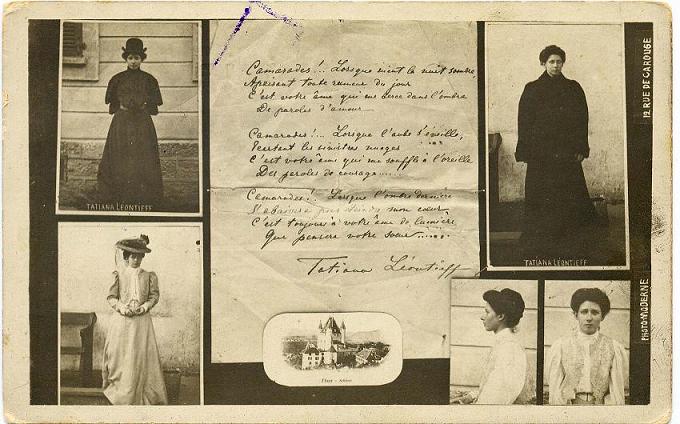 TATIANA LÉONTIEFF
Camarades!... Lorsque vient la nuit sombre
Apaisant toute rumeur du jour
C'est votre âme qui me berce dans l'ombre
De paroles d'amour
Camarades!... Lorsque l'aube s'éveille,
Écartant les sinistres nuages
C'est votre âme qui me souffle à l'oreille
Des paroles de courage......
Camarades!.. Lorsque l'ombre dernière
S'abaissera pour mon cœur
C'est toujours à votre âme de lumière
Que pensera votre sœur......
Tatiana Léontieff
TATIANA LÉONTIEFF
12 RUE DE CAROUGE
PHOTO MODERNE